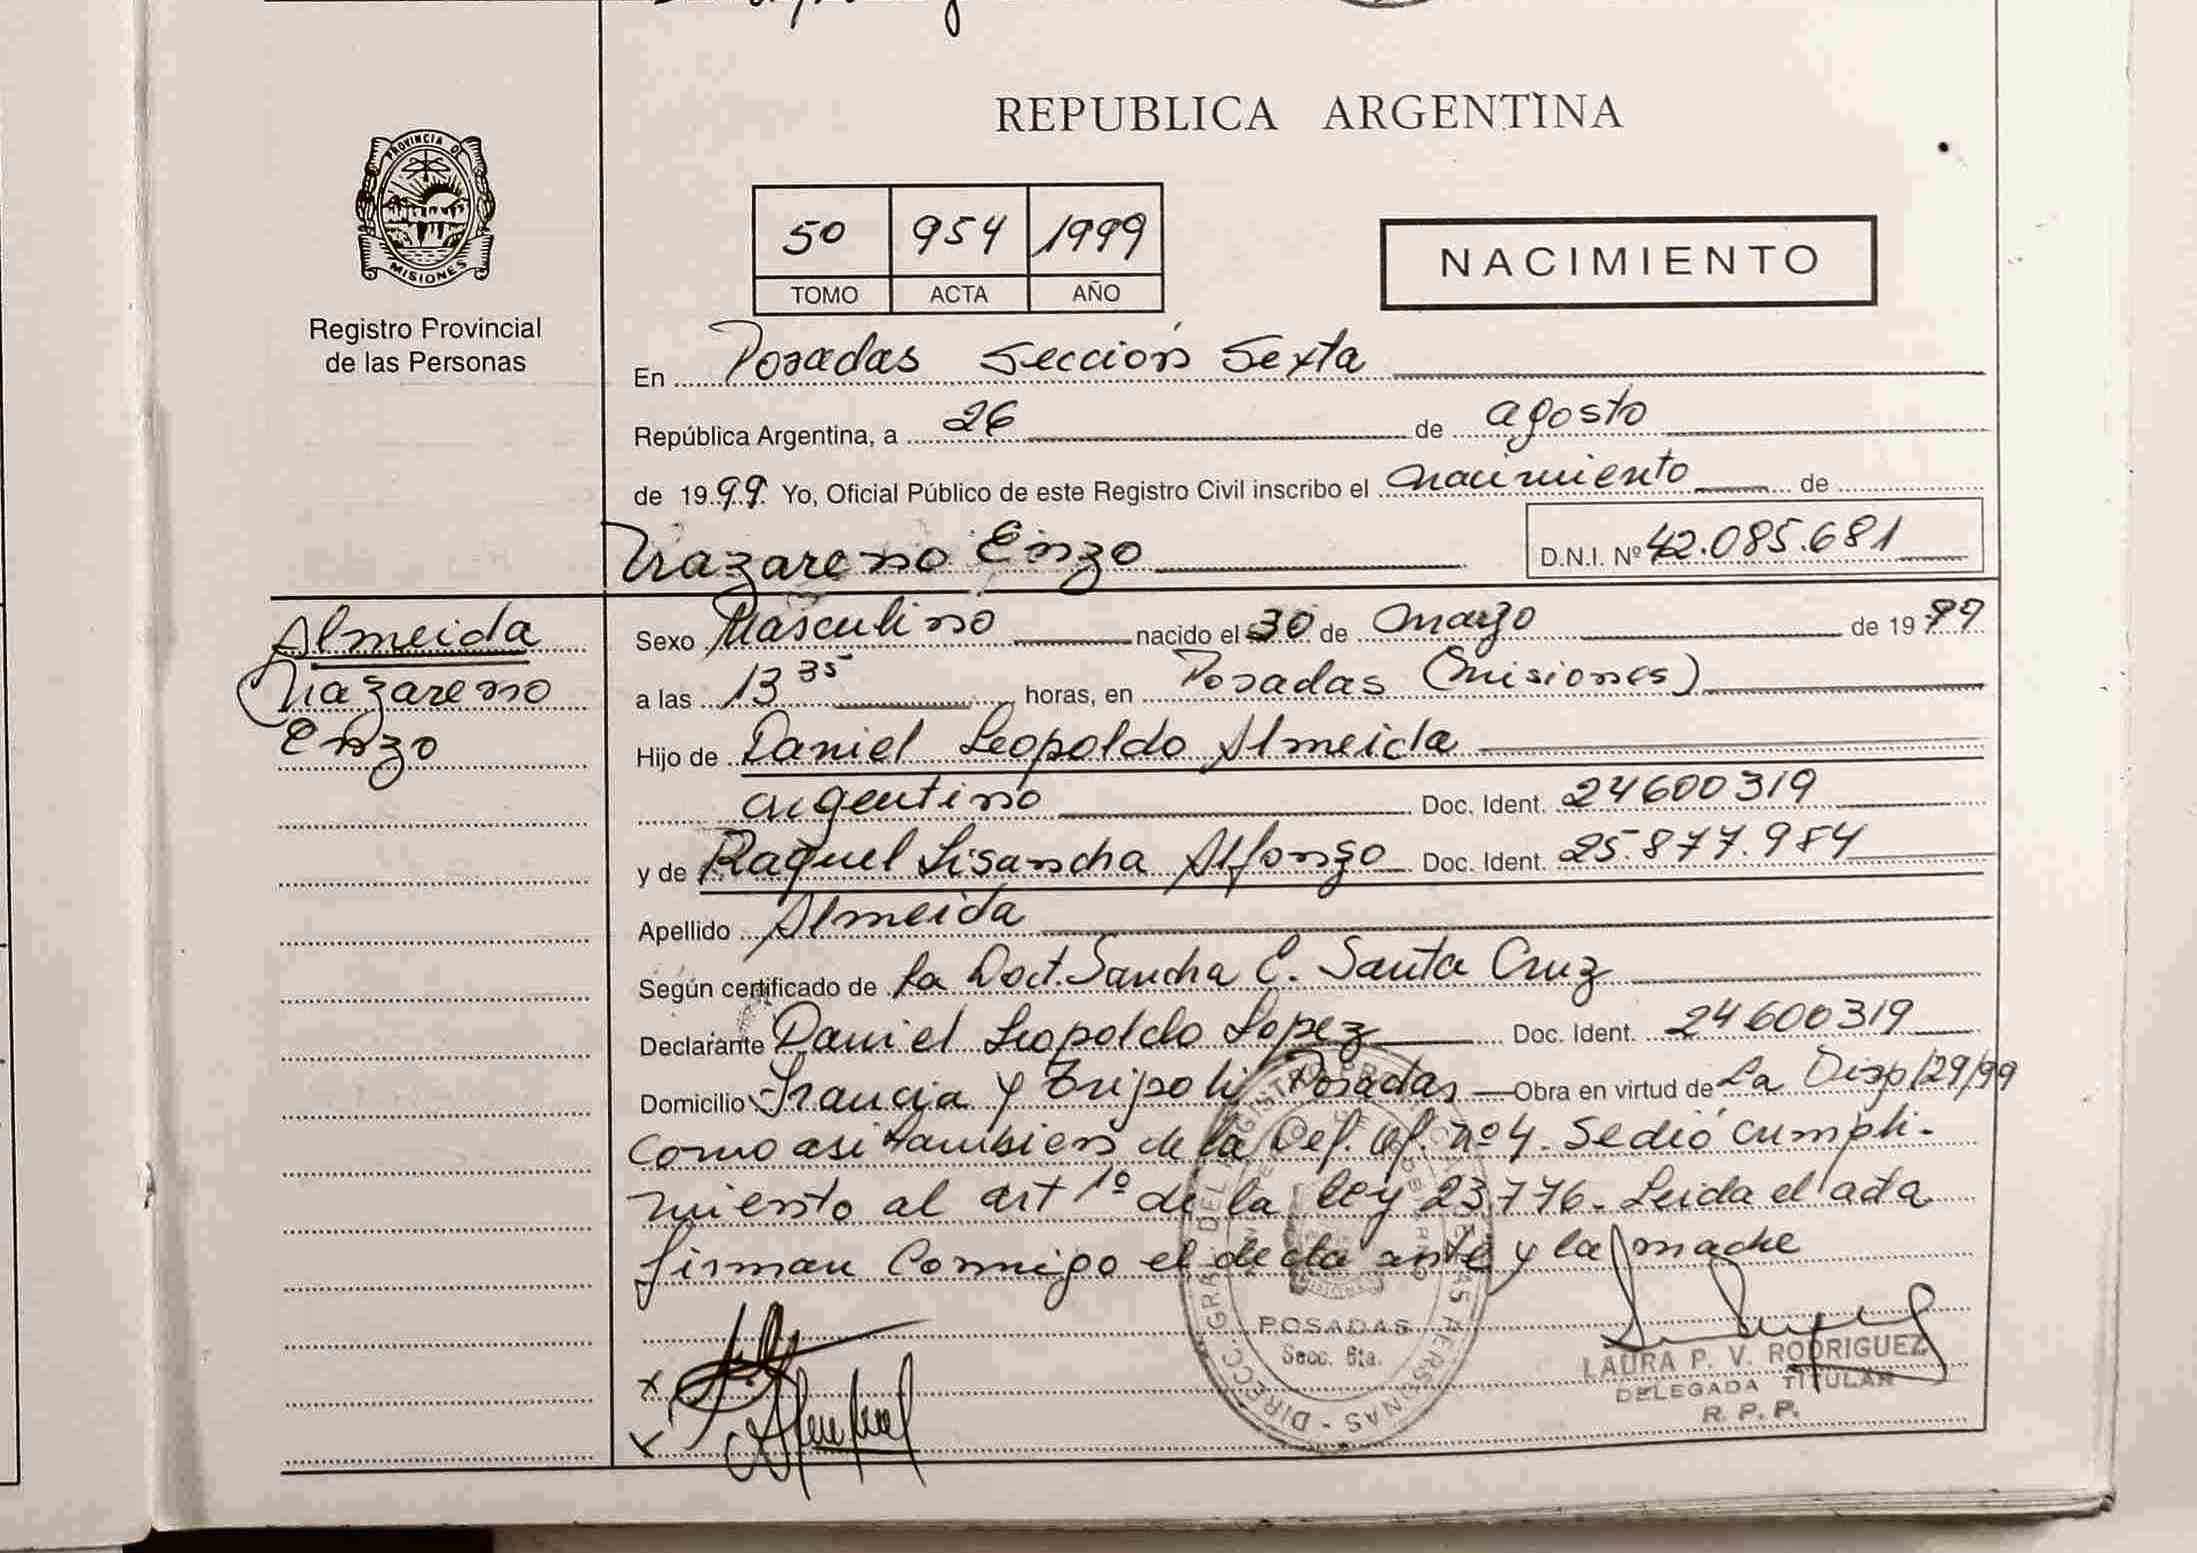 PROVINCIA DE
MISIONES
Registro Provincial
de las Personas
REPUBLICA ARGENTINA
50 954 1999
TOMO ACTA AÑO
NACIMIENTO
En Posadas Sección Sexta
República Argentina, a 26 de agosto
de 1999 Yo, Oficial Público de este Registro Civil inscribo el nacimiento de
Nazareno Enzo D.N.I. Nº 42.085.681
Almeida
Nazareno
Enzo
Sexo Masculino nacido el 30 de marzo de 1999
a las 13 35 horas, en Posadas (Misiones)
Hijo de Daniel Leopoldo Almeida
argentino Doc. Ident. 24600319
y de Raquel Lisandra Alfonzo Doc. Ident. 25.877.984
Apellido Almeida
Según certificado de la Doct. Sandra C. Santa Cruz
Declarante Daniel Leopoldo Lopez Doc. Ident. 24600319
Domicilio Francia y Tripoli Posadas Obra en virtud de La Disp 129/99
como asi tambien de la Def. Of. nº 4. Se dió cumpli-
miento al art 1º de la ley 23.776. Leida el acta
firman Conmigo el declarante y la madre
POSADAS
Secc. 6ta.
LAURA P. V. RODRIGUEZ
DELEGADA TITULAR
R. P. P.